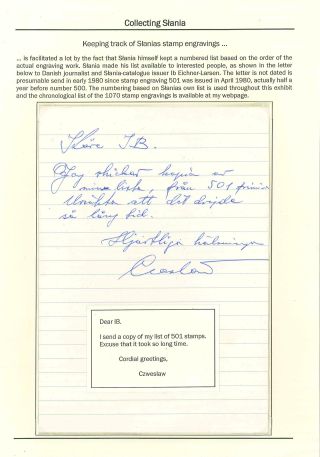 Collecting Słania
Keeping track of Słanias stamp engravings ...
... is facilitated a lot by the fact that Słania himself kept a numbered list based on the order of the
actual engraving work. Słania made his list available to interested people, as shown in the letter
below to Danish journalist and Słania-catalogue issuer Ib Eichner-Larsen. The letter is not dated is
presumable send in early 1980 since stamp engraving 501 was issued in April 1980, actually half a
year before number 500. The numbering based on Słanias own list is used throughout this exhibit
and the chronological list of the 1070 stamp engravings is available at my webpage.
Käre IB.
Jag skickar kopia av
mina lista, från 501
Ursäkta att det dröjde
så lång tid.
Hjärtliga hälsningar
Czesław
Dear IB.
I send a copy of my list of 501 stamps.
Excuse that it took so long time.
Cordial greetings,
Czweslaw